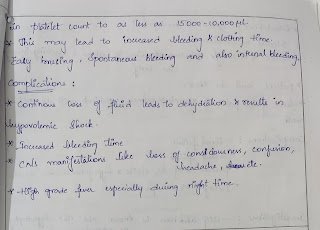 in platelet count to as less as 15000-10,000/µl.
* This may lead to increased bleeding & clotting time.
Easy bruising, Spontaneous bleeding and also internal bleeding.
Complications :
* Continous loss of fluid leads to dehydration & results in
hypovolemic Shock.
* Increased bleeding time
* CNS manifestations like loss of consciousness, confusion,
headache, etc.
* High grade fever especially during night time.